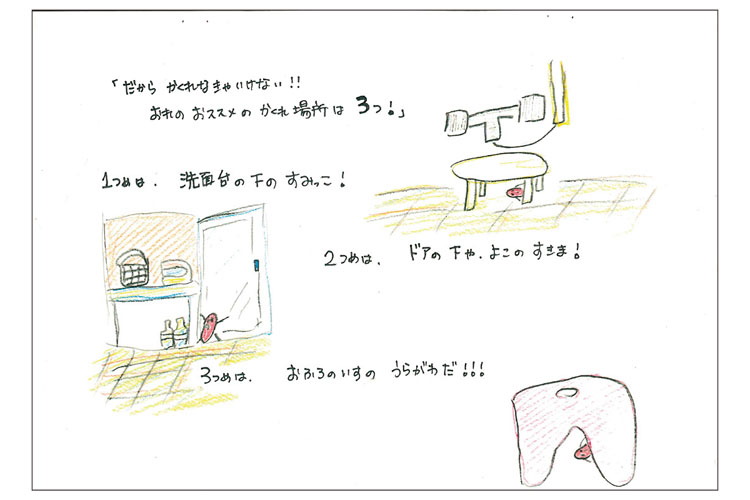 「だから かくれなきゃいけない!!
おれの おススメの かくれ場所は 3つ!」
1つめは、 洗面台の下の すみっこ!
2つめは、 ドアの 下や、よこの すきま!
3つめは、 おふろのいすの うらがわだ!!!